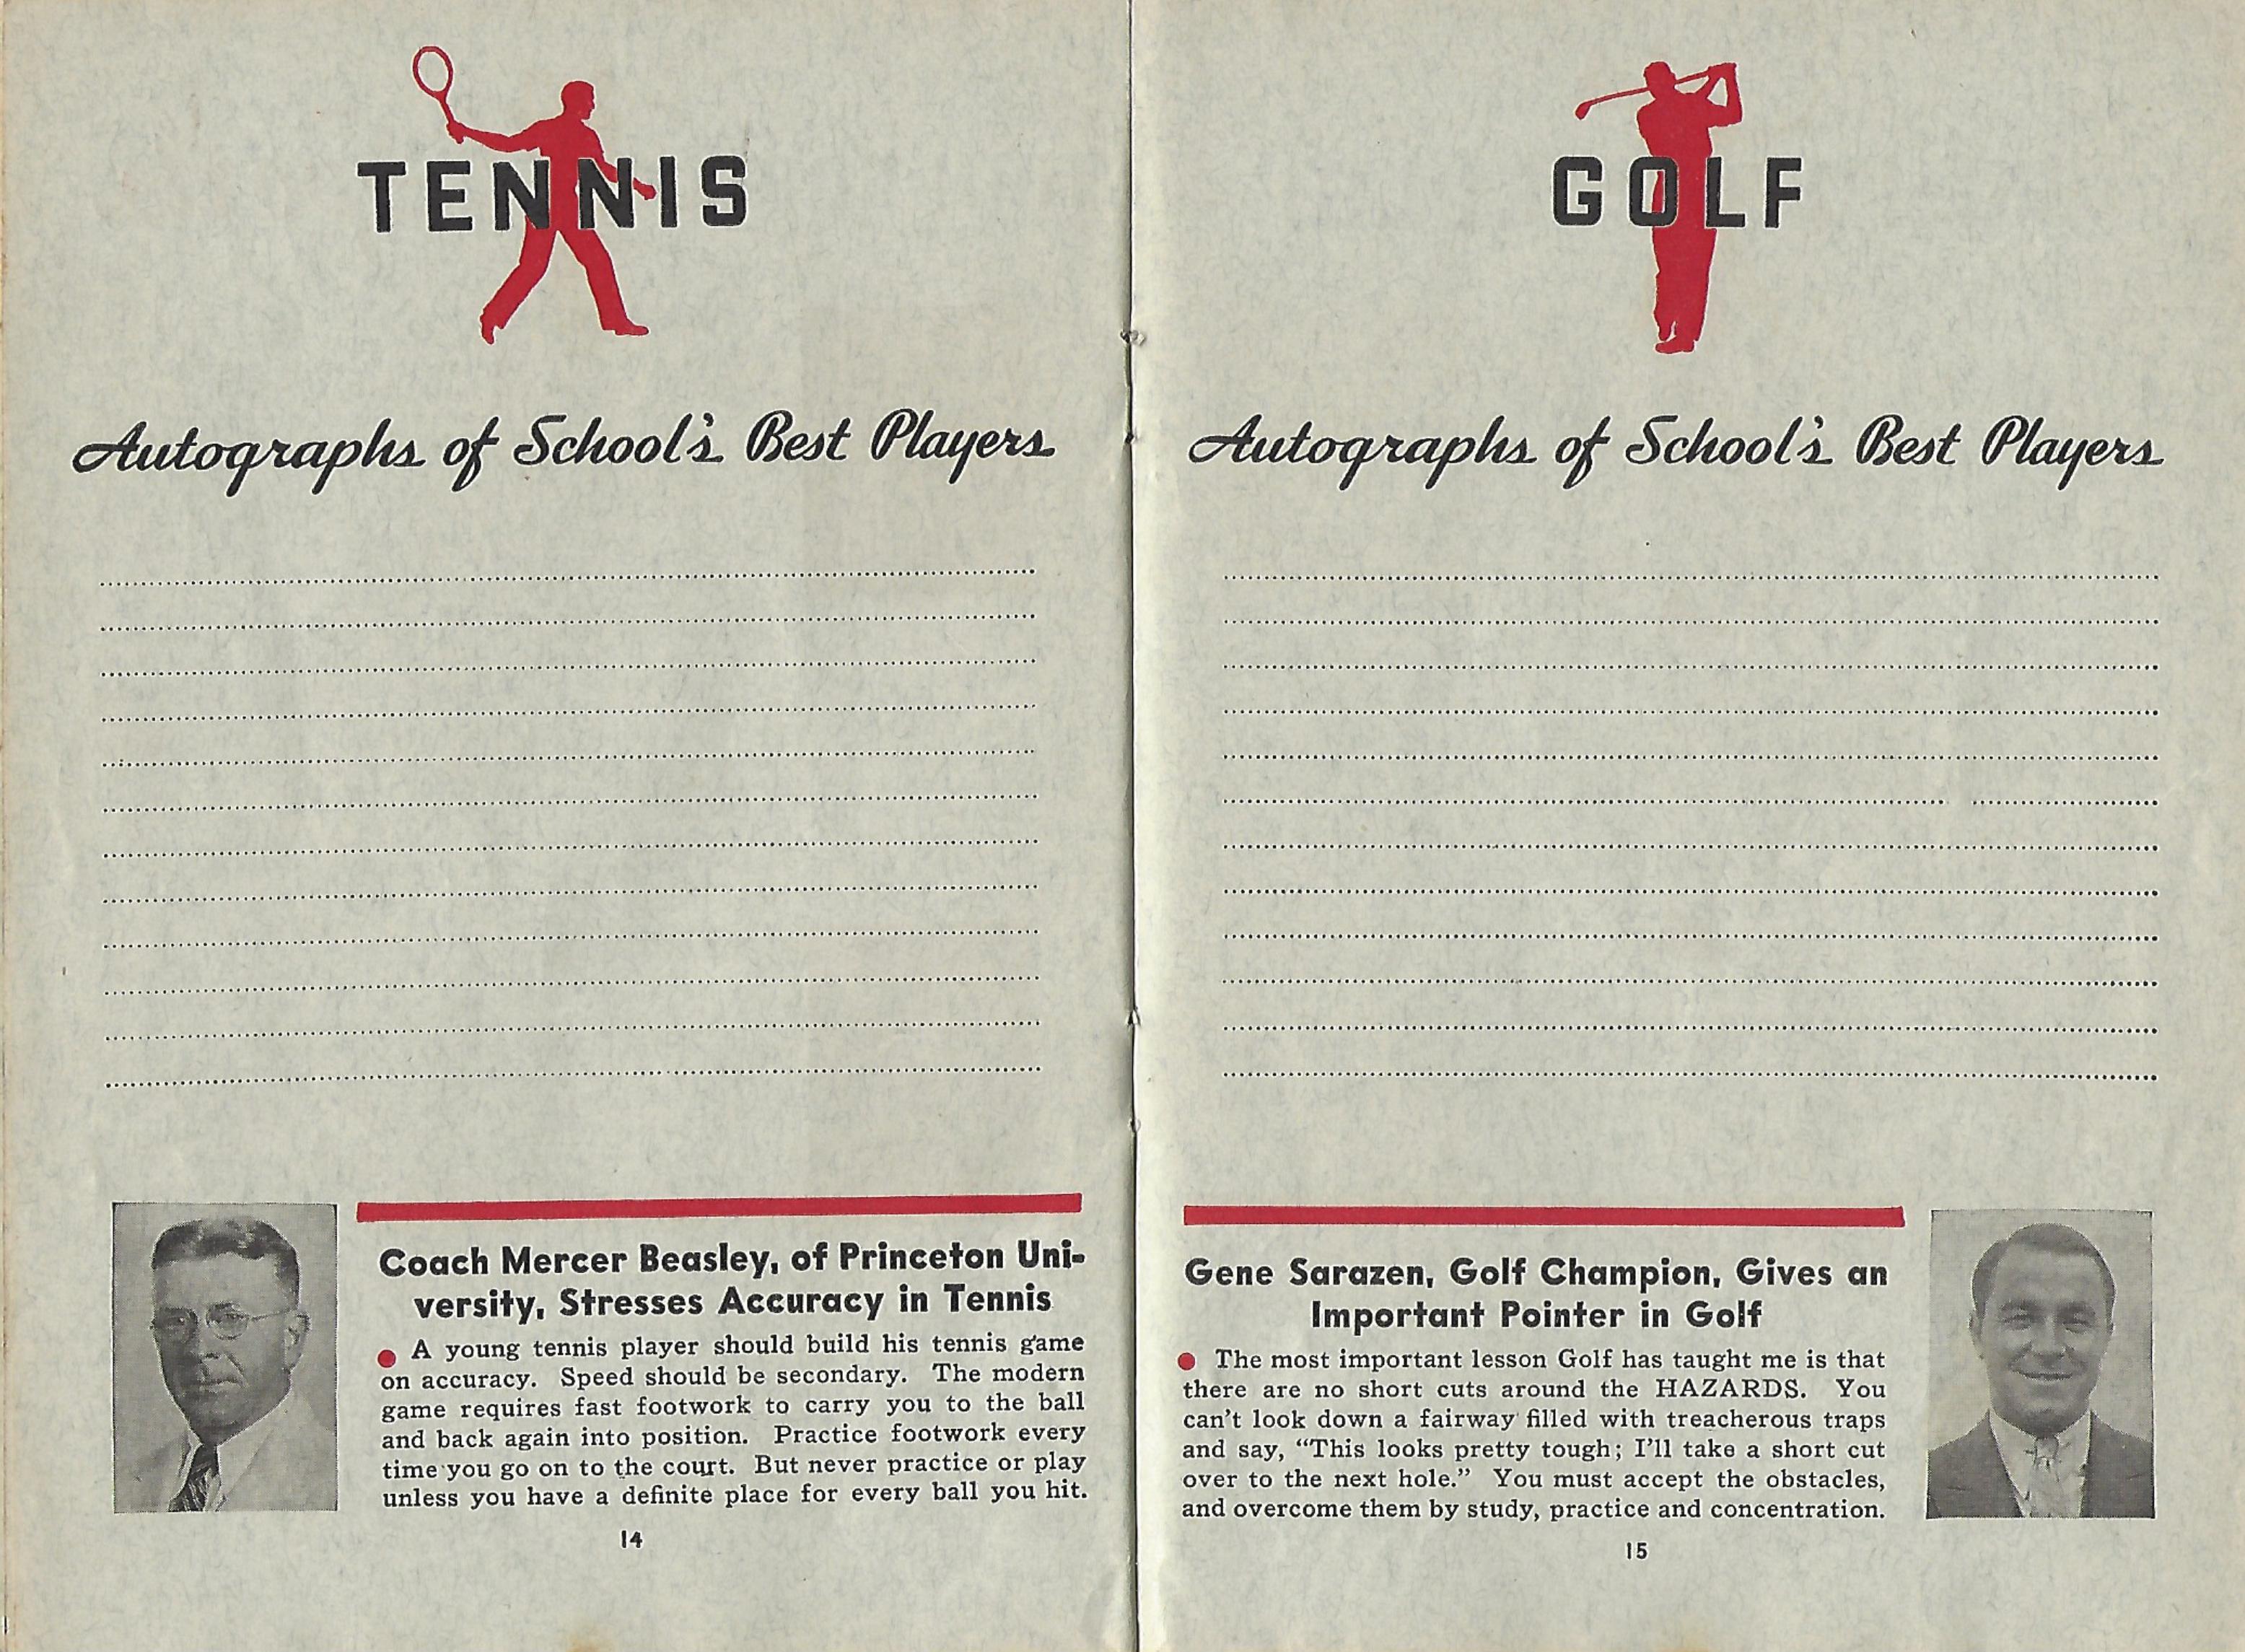 TENNIS
Autographs of School's Best Players
Coach Mercer Beasley, of Princeton Uni-
versity, Stresses Accuracy in Tennis
● A young tennis player should build his tennis game
on accuracy. Speed should be secondary. The modern
game requires fast footwork to carry you to the ball
and back again into position. Practice footwork every
time you go on to the court. But never practice or play
unless you have a definite place for every ball you hit.
14
GOLF
Autographs of School's Best Players
Gene Sarazen, Golf Champion, Gives an
Important Pointer in Golf
● The most important lesson Golf has taught me is that
there are no short cuts around the HAZARDS. You
can't look down a fairway filled with treacherous traps
and say, “This looks pretty tough; I'll take a short cut
over to the next hole.” You must accept the obstacles,
and overcome them by study, practice and concentration.
15